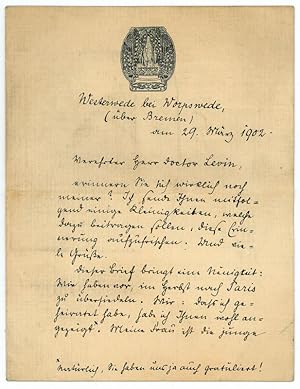 Westerwede bei Worpswede,
(über Bremen)
am 29. März 1902.
Verehrter Herr Doctor Levin,
erinnern Sie sich wirklich noch
meiner? Ich sende Ihnen mitfol-
gend einige Kleinigkeiten, welche
dazu beitragen sollen, diese Erin-
nerung aufzufrischen. Und vie-
le Grüße.
Dieser Brief bringt eine Neuigkeit:
Wir haben vor, im Herbst nach Paris
zu übersiedeln. Wir: daß ich ge-
heiratet habe, hab ich Ihnen wohl an-
gezeigt*. Meine Frau ist die junge
*natürlich, Sie haben uns ja auch gratuliert!